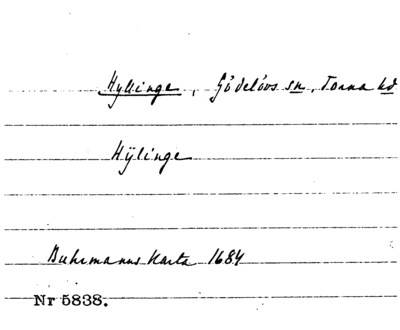 Hyllinge, Gödelövs sn, Torna hd
Hÿlinge
Buhrmanns Karta 1684
Nr 5838.